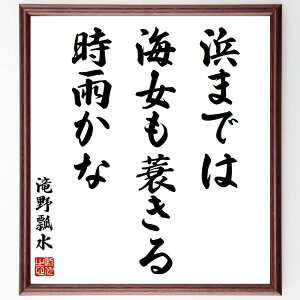 浜までは
海女も蓑きる
時雨かな
滝野瓢水